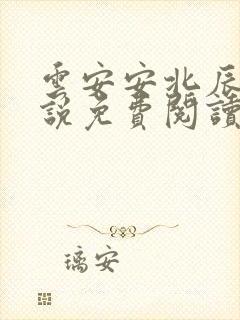 雲安安北辰
說免費閱讀
璃安